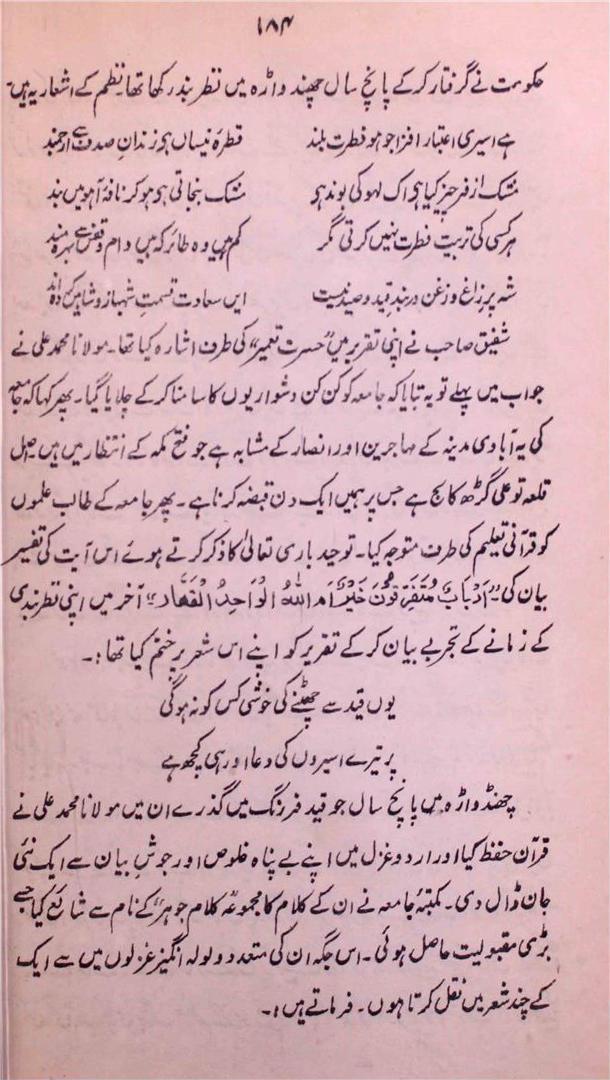 ۱۸۴
حکومت نے گرفتار کرکے پانچ سال چھندواڑہ میں نظر بند رکھا تھا۔ نظم کے اشعار یہ ہیں۔
ہے اسیری اعتبار افزا جو ہو فطرت بلند قطرۂ نیساں ہی زندانِ صدف سے ارجمند
مشک ازفر چیز کیا ہی اک لہو کی بوند ہی مشک بنجاتی ہی ہو کر نافۂ آہو میں بند
ہر کسی کی تربیت فطرت نہیں کرتی مگر کم ہیں وہ طائر کہ ہیں دام و قفس سے بہرہ مند
شہ پر زاغ و زغن در بندِ قید و صید نیست ایں سعادت قسمتِ شہباز و شاہیں کردہ اند
شفیق صاحب نے اپنی تقریر میں "حسرت تعمیر" کی طرف اشارہ کیا تھا۔ مولانا محمد علی نے
جواب میں پہلے تو یہ بتایا کہ جامعہ کو کن کن دشواریوں کا سامنا کرکے چلایا گیا۔ پھر کہا کہ جامعہ
کی یہ آبادی مدینہ کے مہاجرین اور انصار کے مشابہ ہے جو فتح مکہ کے انتظار میں ہیں۔ اصل
قلعہ تو علی گڑھ کالج ہے جس پر ہمیں ایک دن قبضہ کرنا ہے۔ پھر جامعہ کے طالب علموں
کو قرآنی تعلیم کی طرف متوجہ کیا۔ توحید باری تعالیٰ کا ذکر کرتے ہوئے اس آیت کی تفسیر
بیان کی "أَرْبَابٌ مُتَفَرِّقُونَ خَيْرٌ أَمِ اللهُ الْوَاحِدُ الْقَهَّارُ" آخر میں اپنی نظر بندی
کے زمانے کے تجربے بیان کرکے تقریر کو اپنے اس شعر پر ختم کیا تھا:۔
یوں قید سے چھٹنے کی خوشی کس کو نہ ہوگی
پر تیرے اسیروں کی دعا اور ہی کچھ ہے
چھنڈواڑہ میں پانچ سال جو قید فرنگ میں گذرے ان میں مولانا محمد علی نے
قرآن حفظ کیا اور اردو غزل میں اپنے بے پناہ خلوص اور جوشِ بیان سے ایک نئی
جان ڈال دی۔ مکتبۂ جامعہ نے ان کے کلام کا مجموعہ کلام جوہر" کے نام سے شائع کیا جسے
بڑی مقبولیت حاصل ہوئی۔ اس جگہ ان کی متعدد ولولہ انگیز غزلوں میں سے ایک
کے چند شعر میں نقل کرتا ہوں۔ فرماتے ہیں:۔